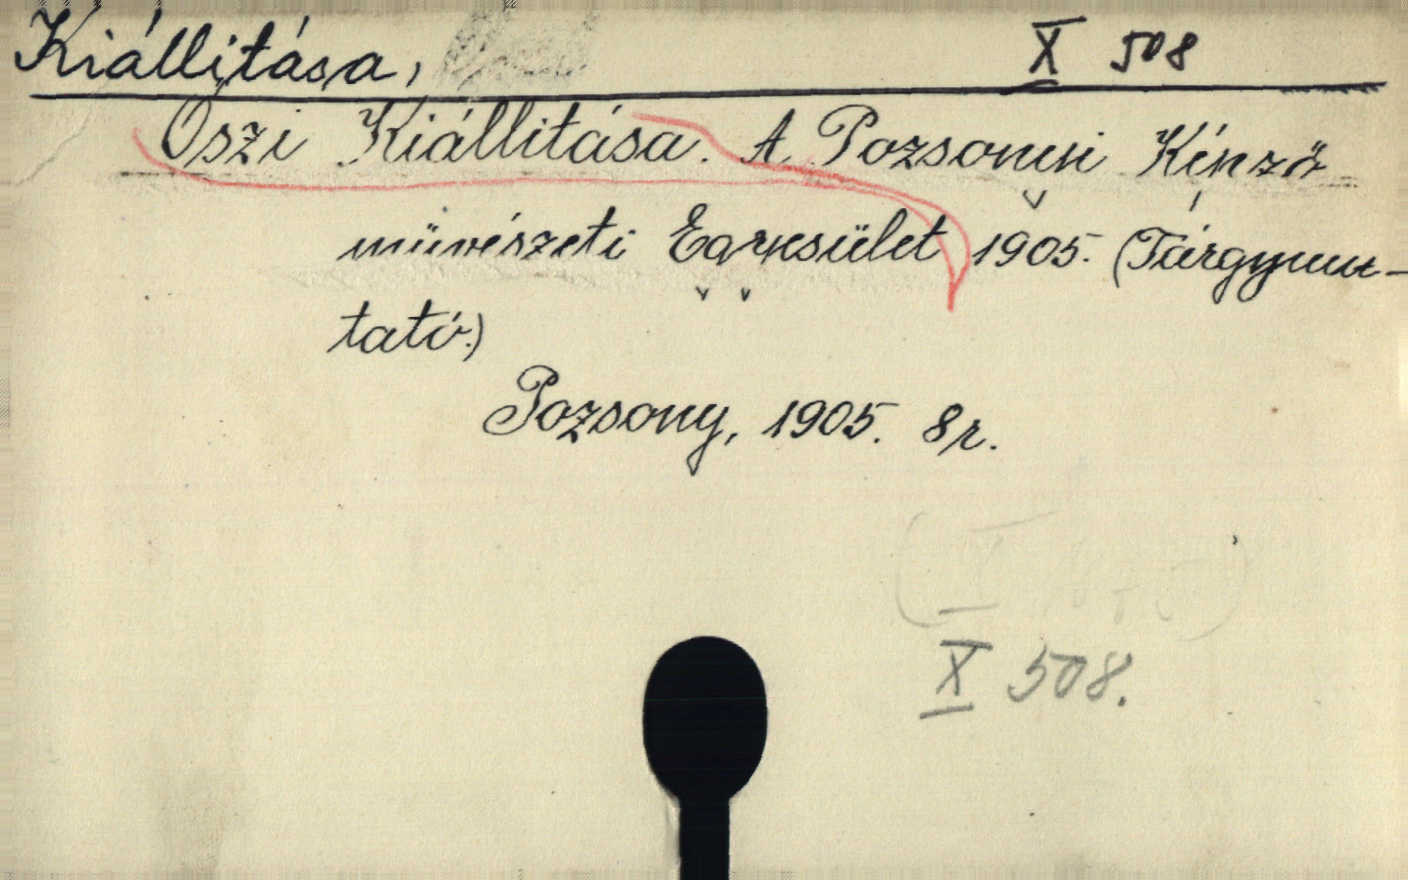 Kiállitása, X 508
Őszi Kiállitása. A Pozsonyi Képző
müvészeti Egyesület 1905. (Tárgymu-
tató.)
Pozsony, 1905. 8r.
X 508.